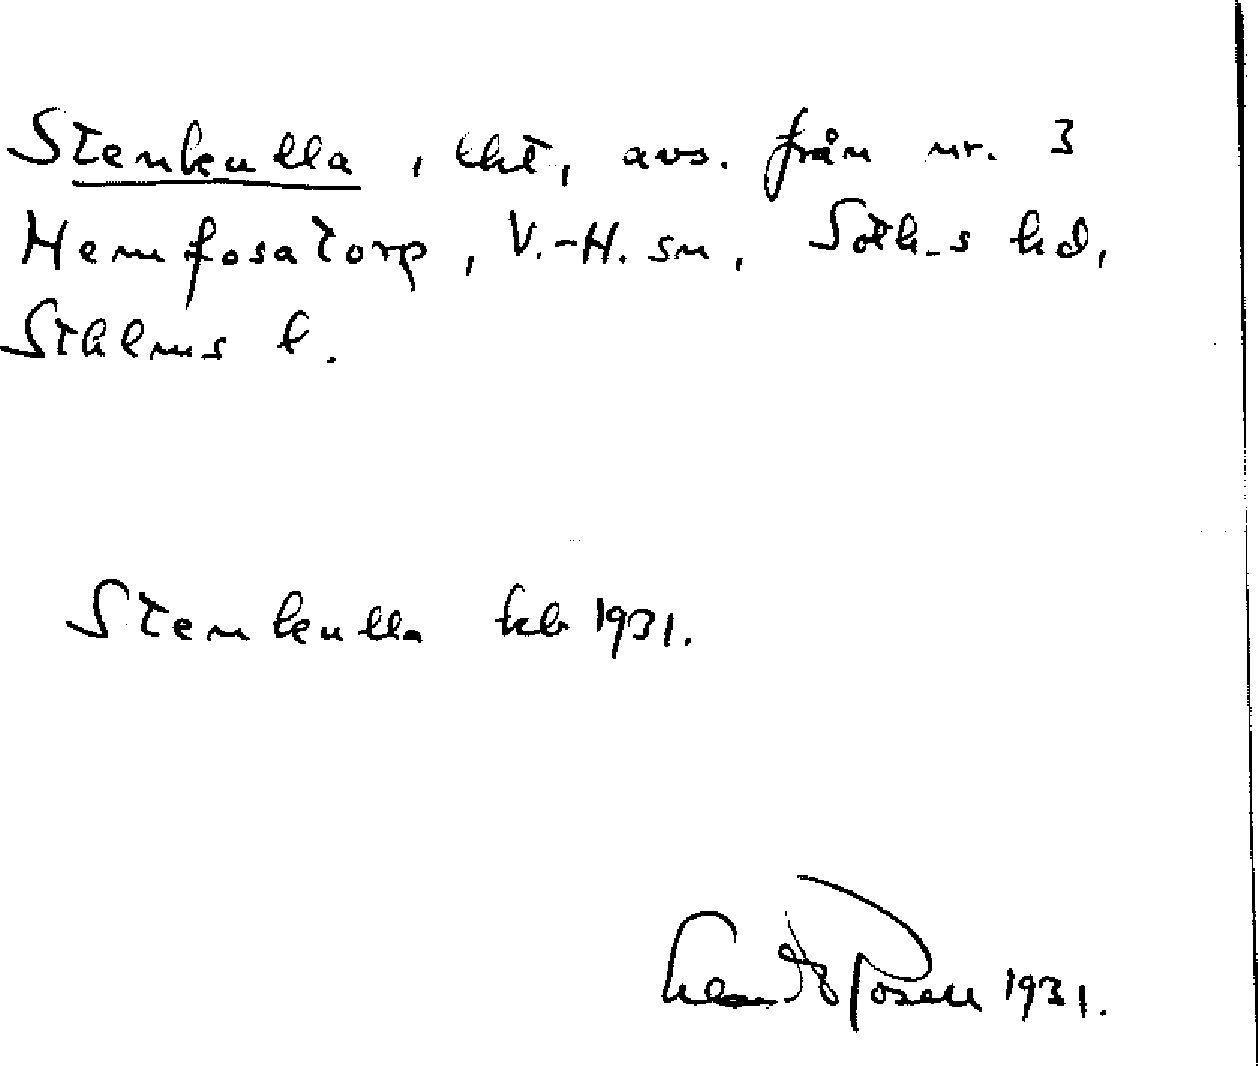 Stenkulla, lht, avs. från nr. 3
Hemfosatorp, V.-H. sn, Soth-s hd,
Sthlms l.
Stenkulla kb 1931.
1931.